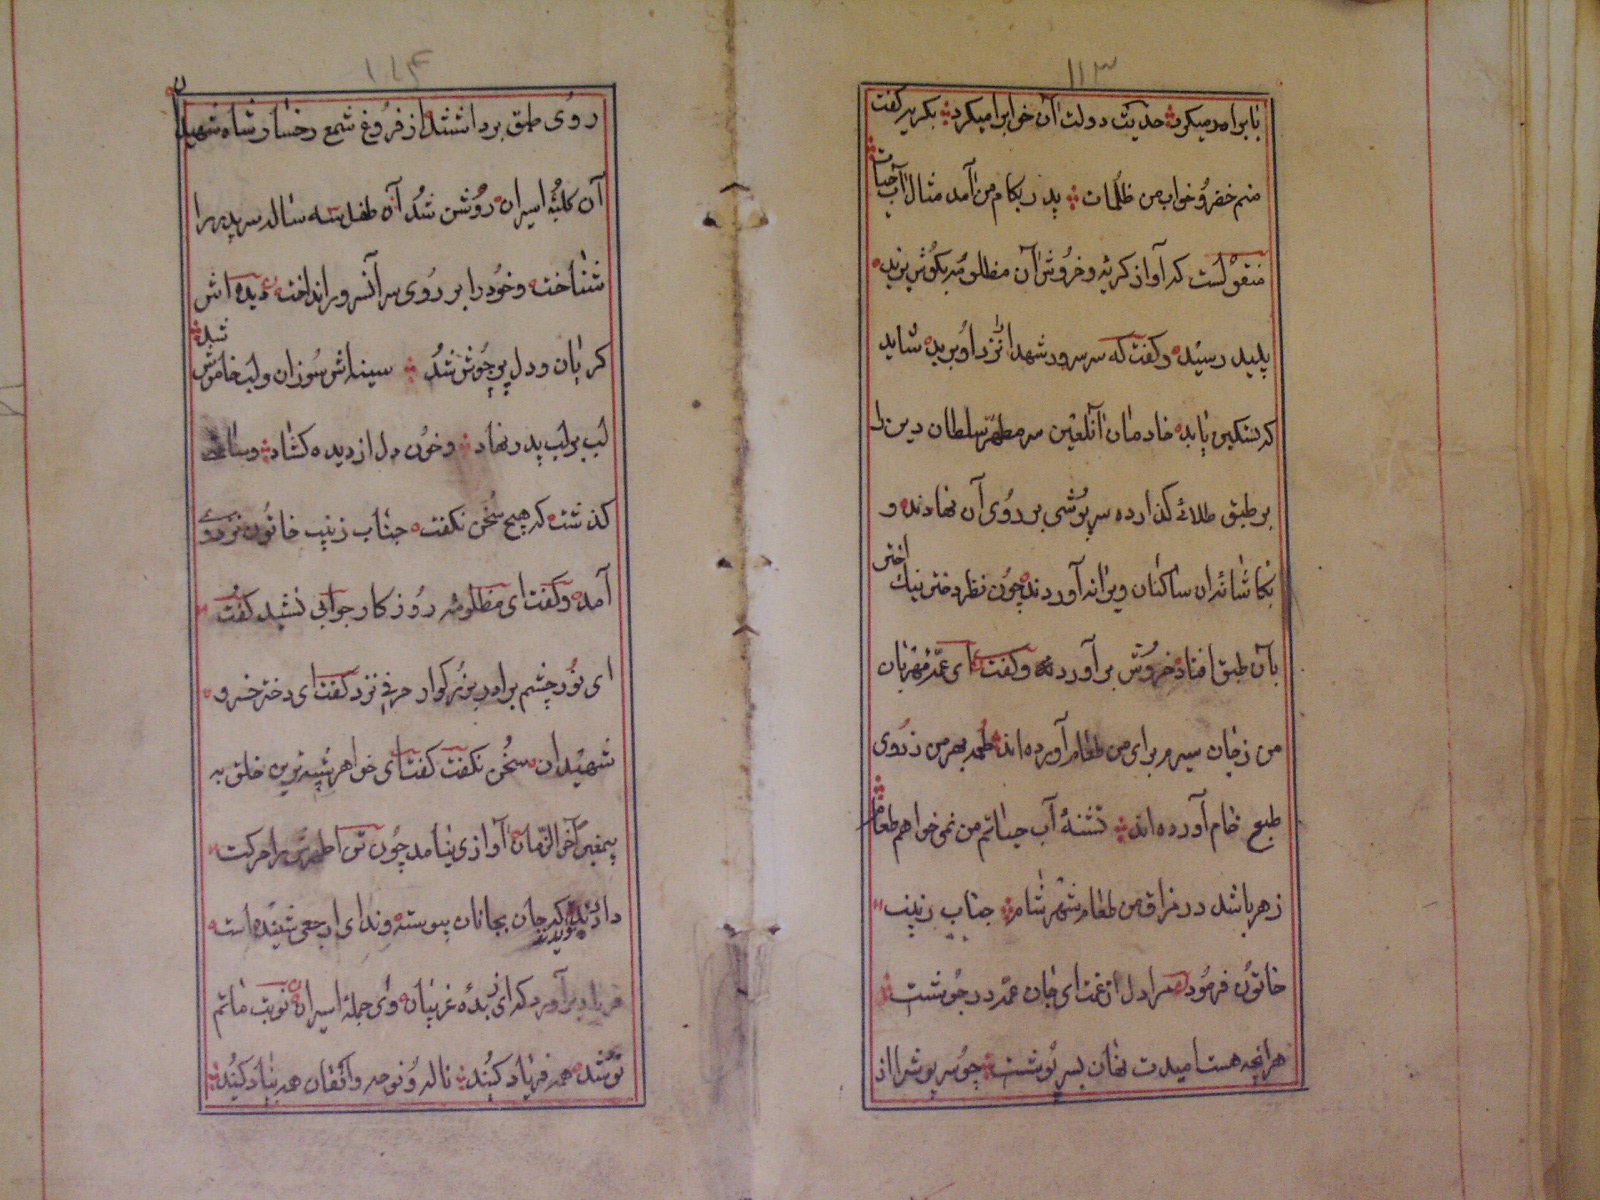 ۱۱۳
بابر امد میکرد حدیث دولت آن خرابرا میکرد بکریه کفت
منم خضر و خواب من ظلمات پدر بکام من آمد مثال آب حیات
منقولست که آواز کریه و خروش آن مظلومه بکوش یزید
پلید رسید و کفت که سر سرور شهدا نزد او برید شاید
که تسکین یابد خادمان آنلعین سر مطهر سلطان دین را
بر طبق طلائی کذارده سرپوشی بر روی آن نهادند و
بکاشانهٔ آن ساکنان ویرانه آوردند چون نظر دختر نیک اختر
بآن طبق افتاد خروش برآورد و کفت ای عمّه مهربان
من ز جان سیرم برای من طعام آورده اند طمعه بهر من ز روی
طبع خام آورده اند تشنهٔ آب حیاتم من نمی خواهم طعام
زهر باشد در فراق من طعام شهر شام جناب زینب
خاتون فرمود مرا دل از غمت ای جان عمّه در جوشست
هر انچه هست امیدت نهان بسرپوشست چو سرپوش را از
۱۱۴
روی طبق برداشتند از فروغ شمع رخسار شاه شهید
آن کلبهٔ اسیران روشن شد آن طفل سه ساله سر پدر را
شناخت و خود را بر روی سر آنسرور انداخت دیده اش
کریان و دل پر جوش شد سینه اش سوزان و لب خاموش شد
لب بر لب پدر نهاد و خون دل از دیده کشاد و ساعتی
کذشت که هیچ سخن نکفت جناب زینب خاتون نزد وی
آمد و کفت ای مظلومهٔ روزکار جوابی نشنید کفت
ای نور چشم برادر بزرکوار حرفی نزد کفت ای دختر خسرو
شهیدان سخن نکفت کفت ای خواهر شبیه ترین خلق به
پیمغبر آخر الزمان آوازی نیامد چون تن اطهرش را حرکت
دادند دیدند که جان بجانان پیوسته و ندای ارجعی شنیده است
فریاد برآورد که ای زبدهٔ غریبان وی جملهٔ اسیران نوبت ماتم
نو شد همه فریاد کنید ناله و نوحه و افغان همه بنیاد کنید